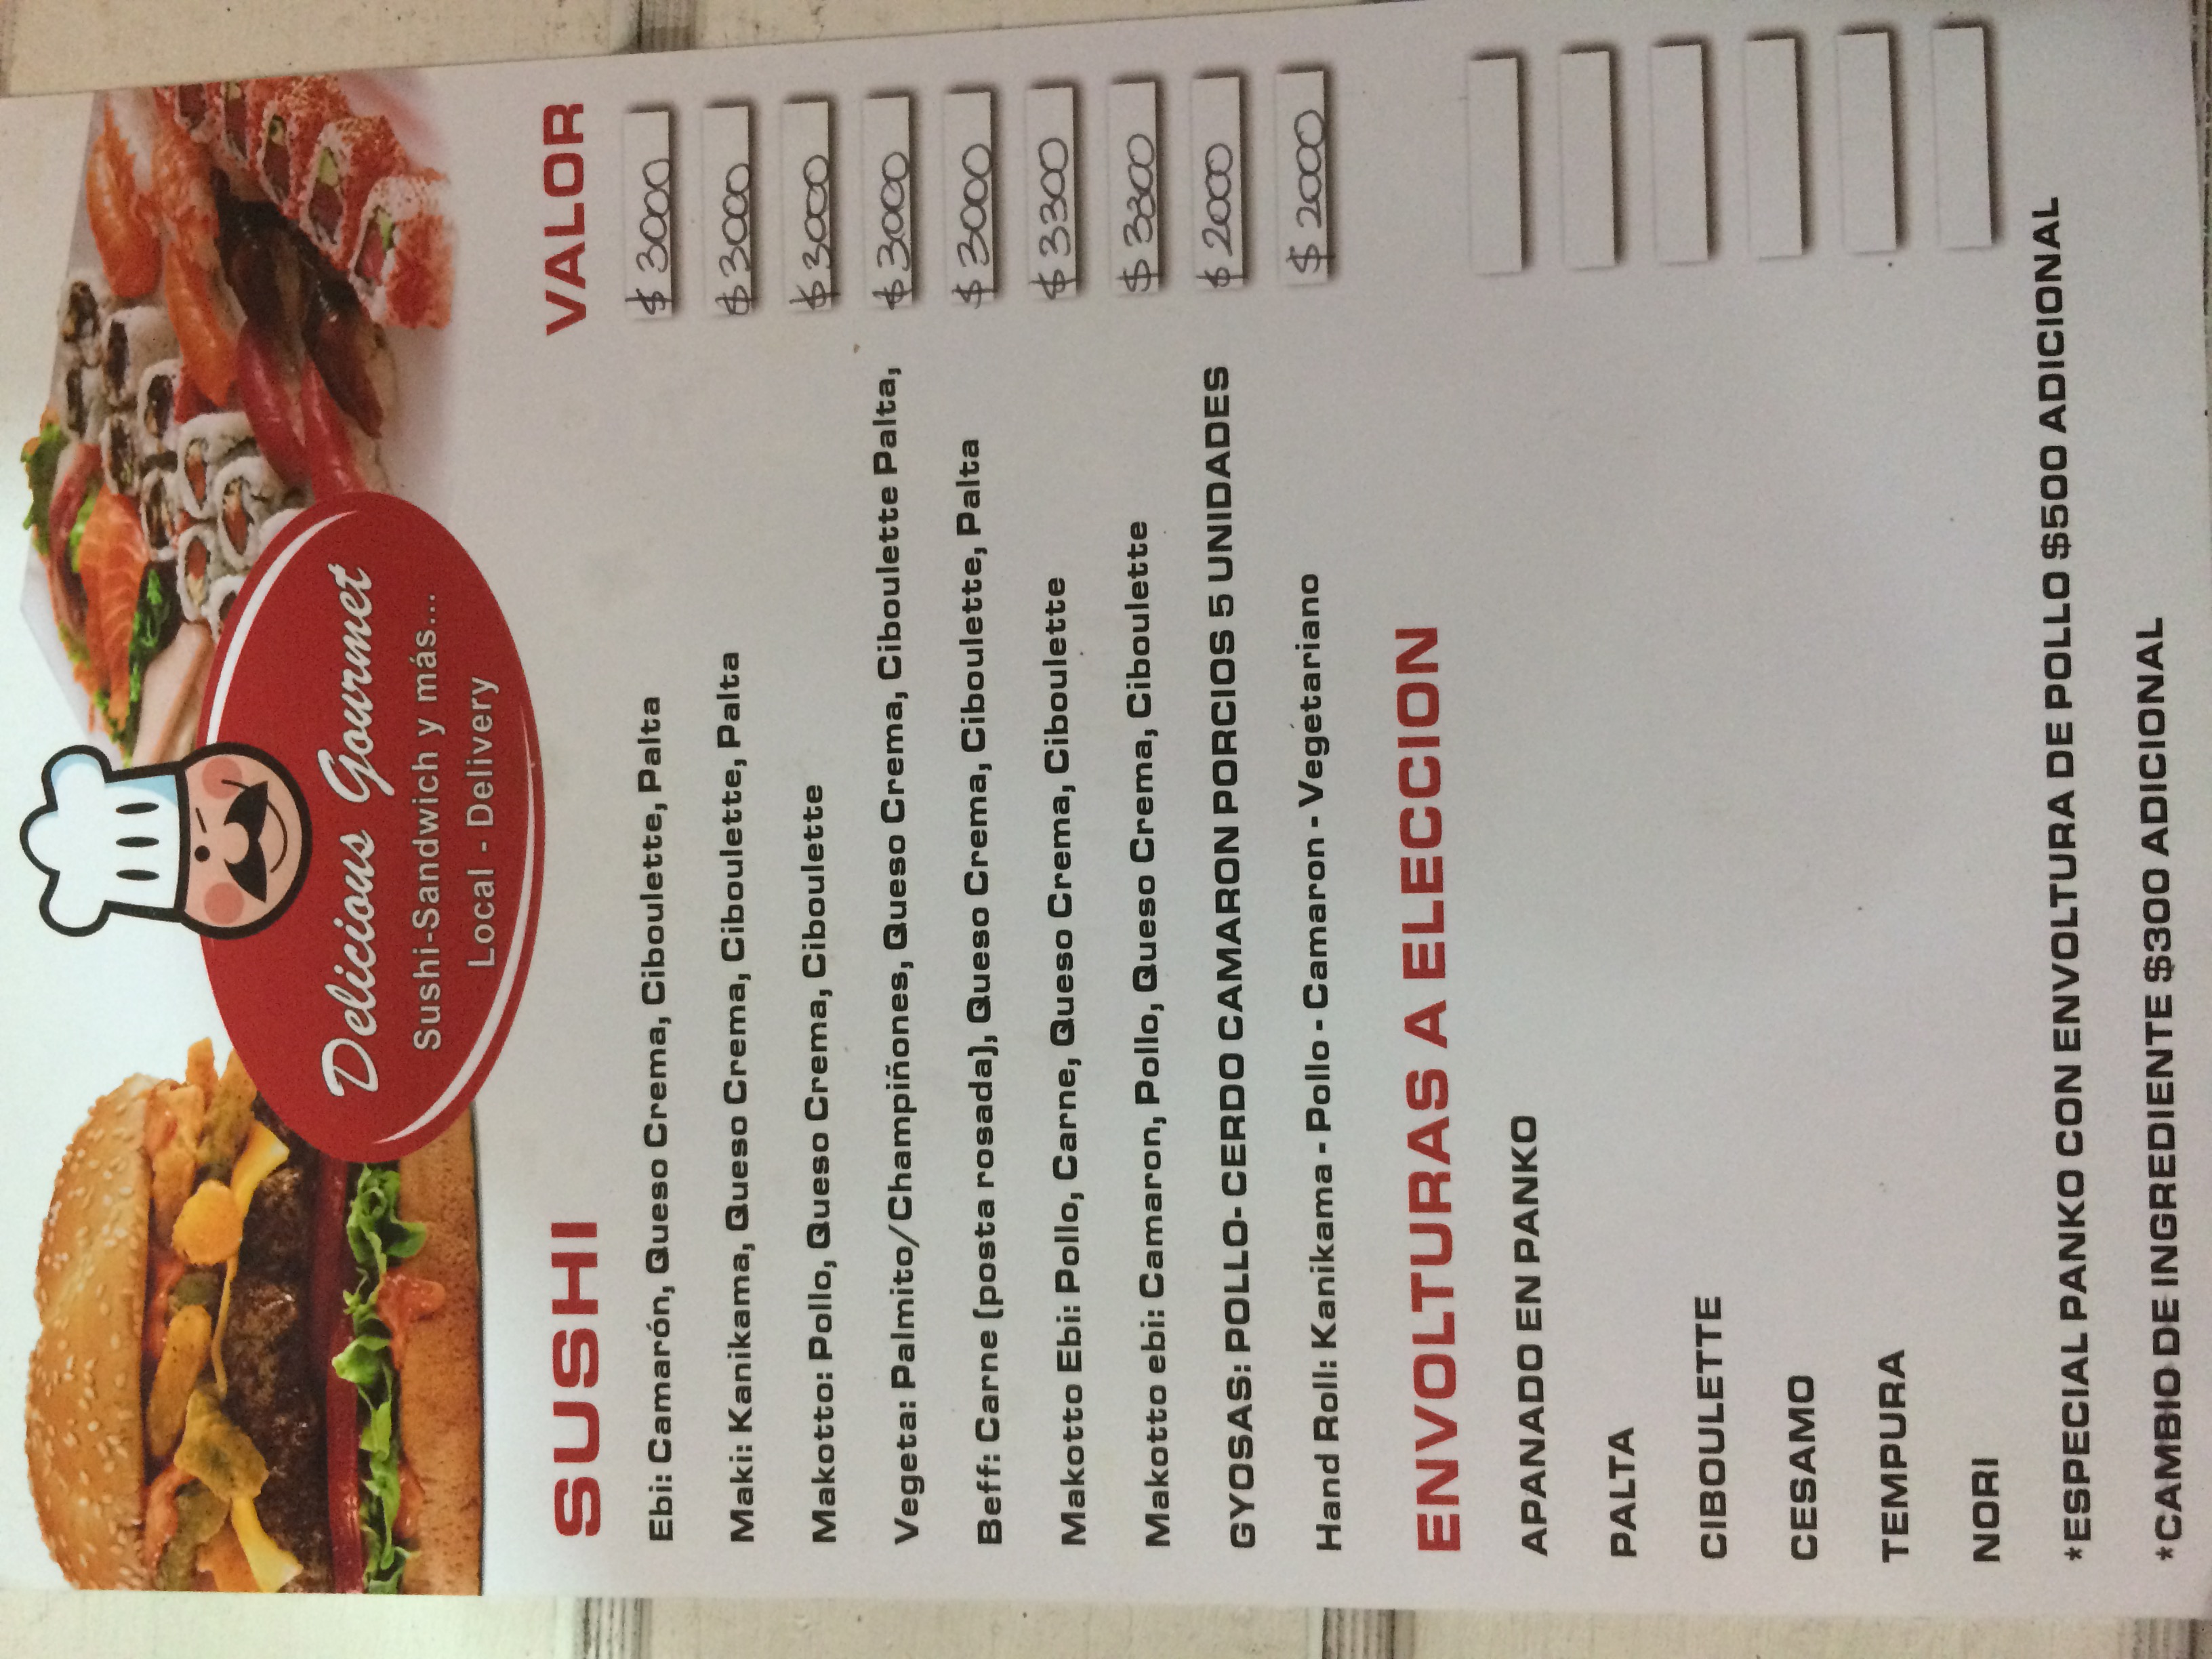 Delicious Gourmet
Sushi-Sandwich y más...
Local - Delivery
SUSHI VALOR
Ebi: Camarón, Queso Crema, Ciboulette, Palta $3000
Maki: Kanikama, Queso Crema, Ciboulette, Palta $3000
Makotto: Pollo, Queso Crema, Ciboulette $3000
Vegeta: Palmito/Champiñones, Queso Crema, Ciboulette Palta, $3000
Beff: Carne (posta rosada), Queso Crema, Ciboulette, Palta $3000
Makotto Ebi: Pollo, Carne, Queso Crema, Ciboulette $3300
Makotto ebi: Camaron, Pollo, Queso Crema, Ciboulette $3300
GYOSAS: POLLO- CERDO CAMARON PORCIOS 5 UNIDADES $2000
Hand Roll: Kanikama - Pollo - Camaron - Vegetariano $2000
ENVOLTURAS A ELECCION
APANADO EN PANKO
PALTA
CIBOULETTE
CESAMO
TEMPURA
NORI
*ESPECIAL PANKO CON ENVOLTURA DE POLLO $500 ADICIONAL
*CAMBIO DE INGREDIENTE $300 ADICIONAL